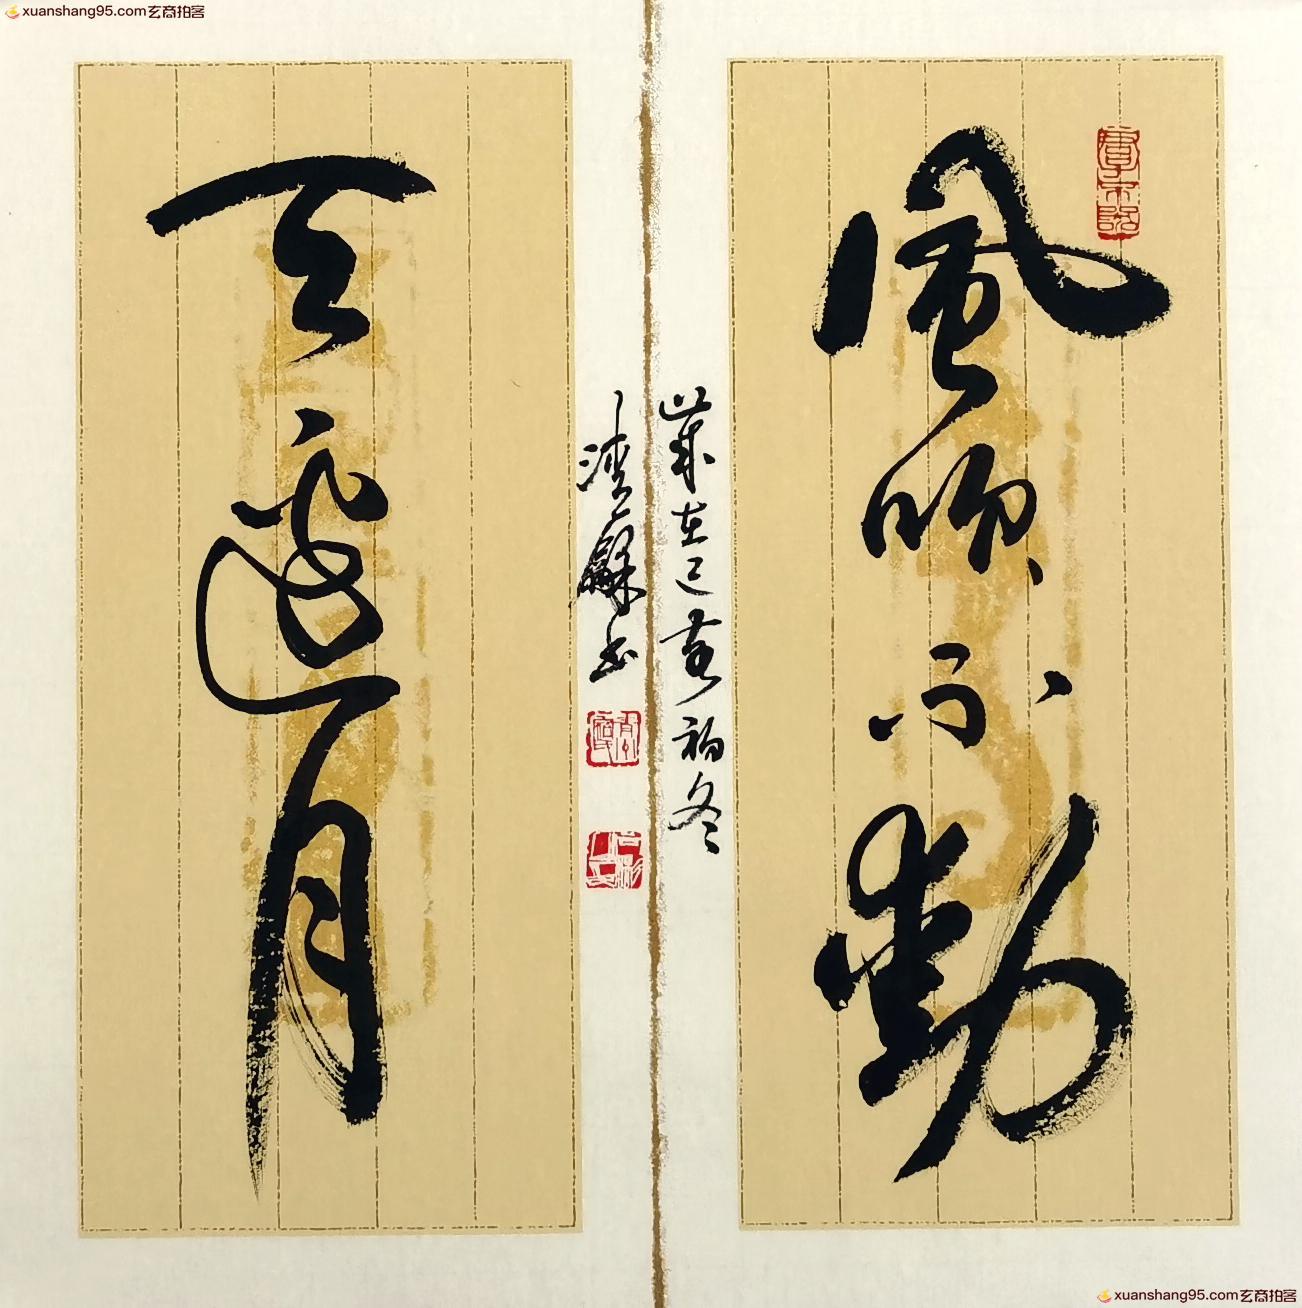 xuanshang95.com玄商拍客
風吹不動
歲在己亥初冬
書
天邊月
xuanshang95.com玄商拍客